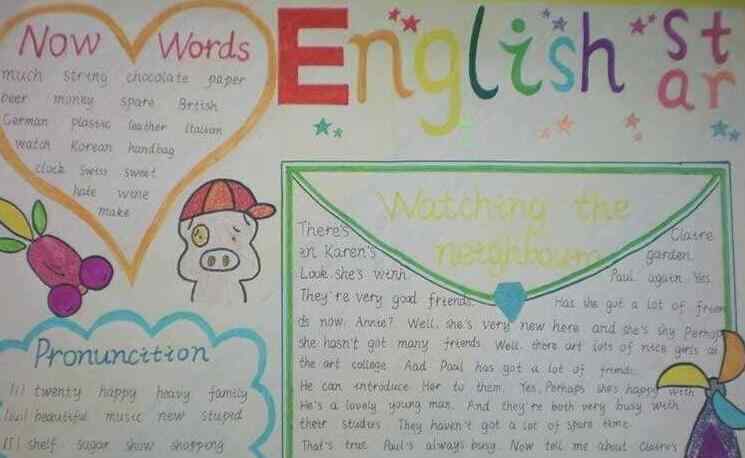 English star
Now Words
much string chocolate paper
beer money spare British
German plastic leather Italian
watch Korean handbag
clock Swiss sweet
hate wine
make
Pronuncition
[i] twenty happy heavy family
beautiful music new stupid
[ʃ] shelf sugar show shopping
Watching the
neighbours
There's Claire
in Karen's garden.
Look, she's with Paul again. Yes.
They're very good friends. Has she got a lot of frien
ds now, Annie? Well, she's very new here and she's shy. Perhap
she hasn't got many friends. Well, there art lots of nice girls at
the art college. And Paul has got a lot of friends.
He can introduce Her to them. Yes, Perhaps she's happy with
He's a lovely young man. And they're both very busy with
their studies. They haven't got a lot of spare time.
That's true. Paul's always busy. Now tell me about Claire's